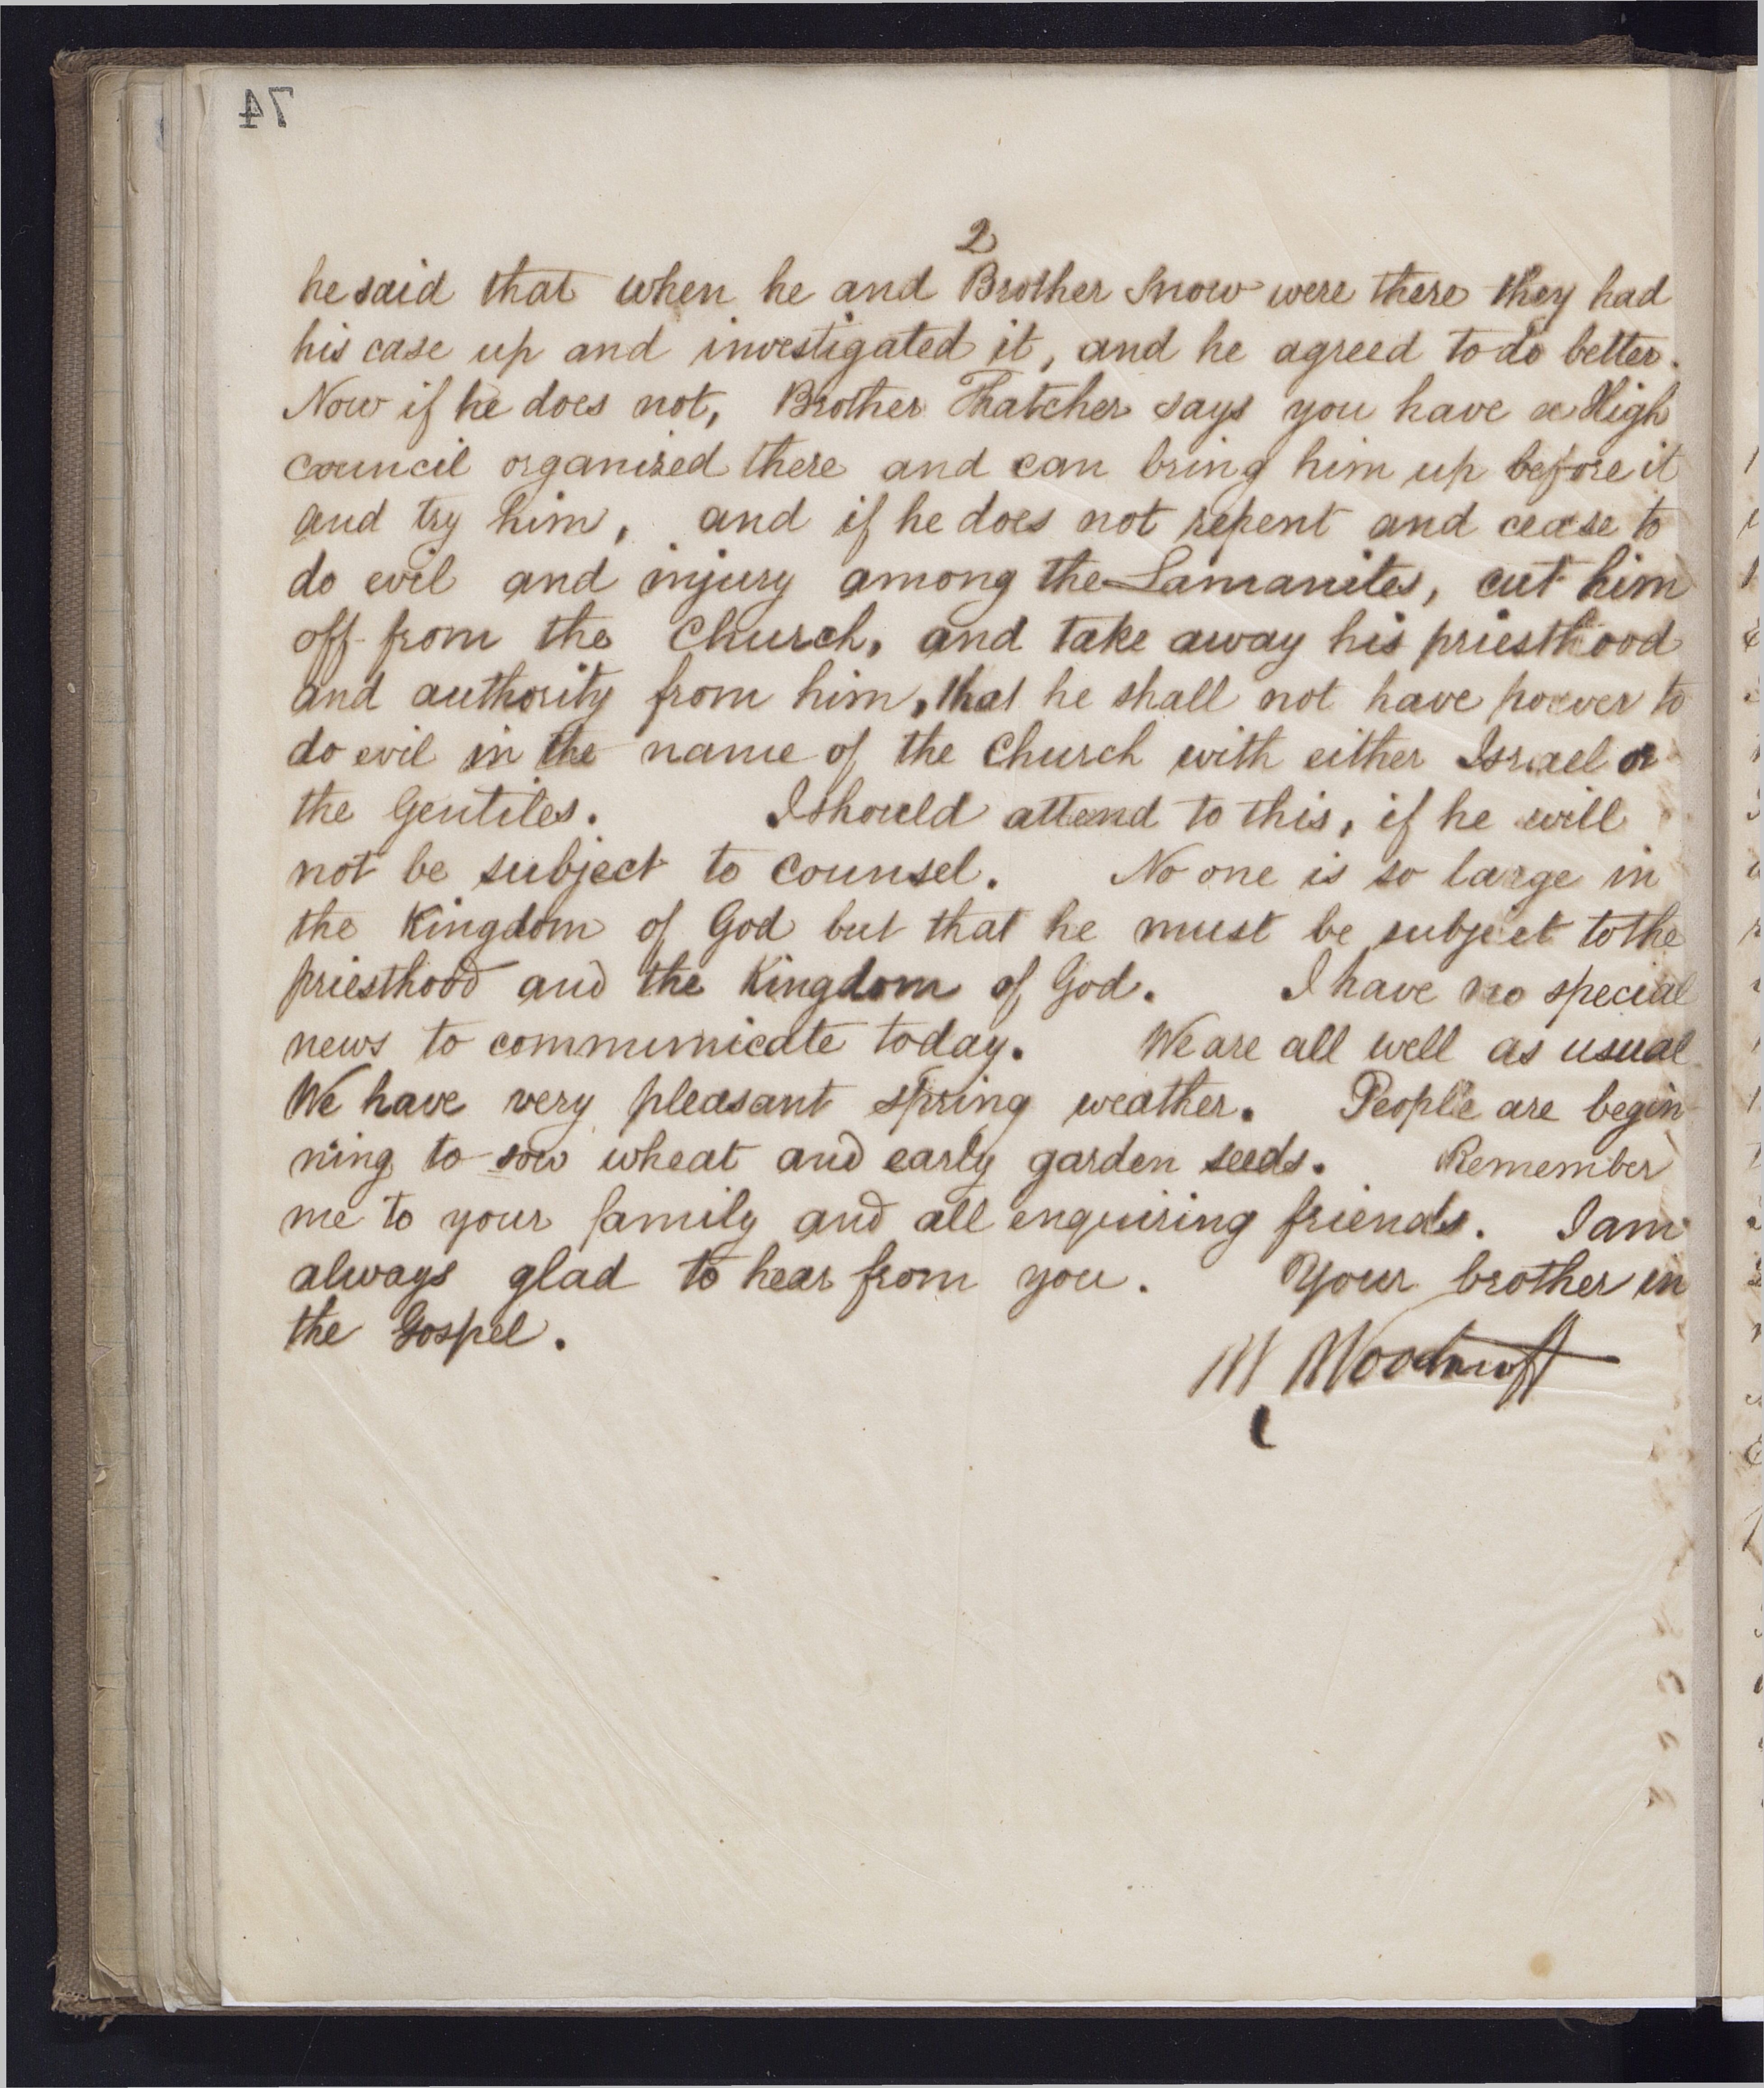 74
2
he said that when he and Brother Snow were there they had
his case up and investigated it, and he agreed to do better.
Now if he does not, Brother Thatcher says you have a High
council organized there and can bring him up before it
and try him, and if he does not repent and cease to
do evil and injury among the Lamanites, cut him
off from the Church, and take away his priesthood
and authority from him, that he shall not have power to
do evil in the name of the Church with either Israel or
the Gentiles. I should attend to this, if he will
not be subject to counsel. No one is so large in
the Kingdom of God but that he must be subject to the
priesthood and the Kingdom of God. I have no special
news to communicate today. We are all well as usual
We have very pleasant spring weather. People are begin
ning to sow wheat and early garden seeds. Remember
me to your family and all enquiring friends. I am
always glad to hear from you. Your brother in
the Gospel.
W Woodruff